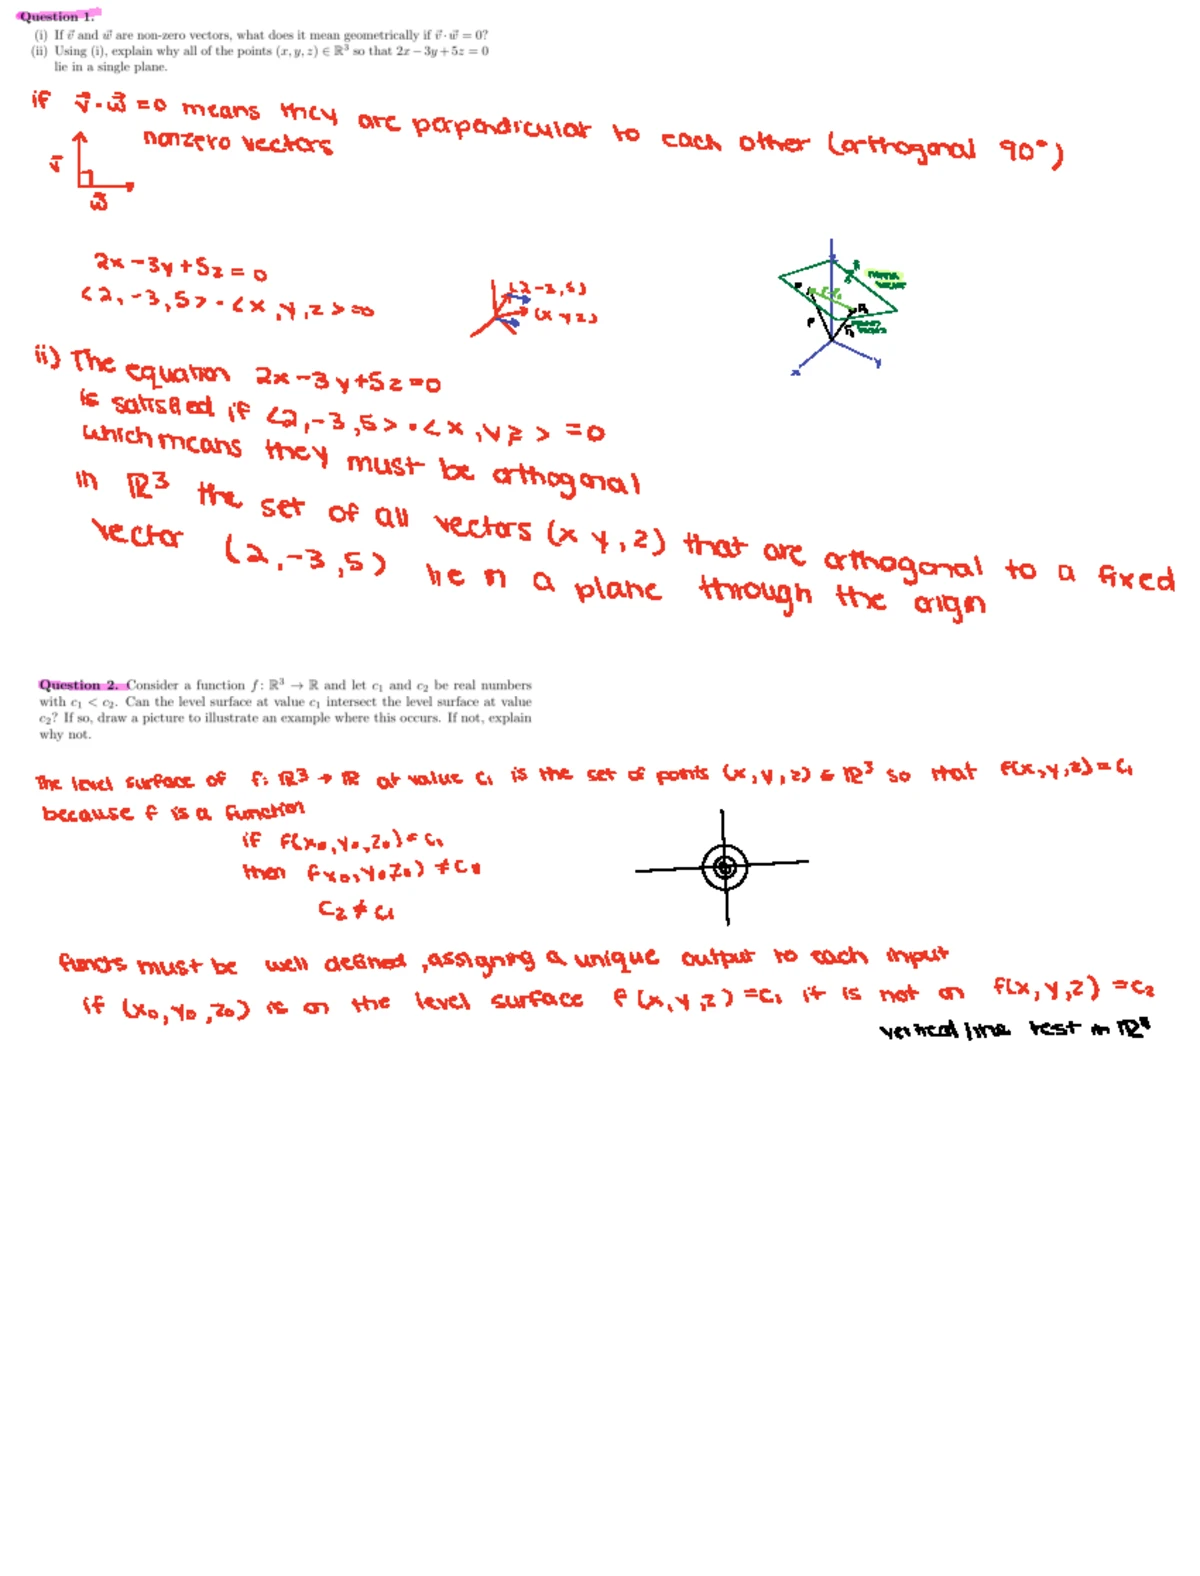 Question 1.
(i) If v⃗ and w⃗ are non-zero vectors, what does it mean geometrically if v⃗ · w⃗ = 0?
(ii) Using (i), explain why all of the points (x, y, z) ∈ ℝ³ so that 2x − 3y + 5z = 0
lie in a single plane.
if v⃗ · w⃗ = 0 means they are perpendicular to each other (orthogonal 90°)
nonzero vectors
v⃗
w⃗
2x − 3y + 5z = 0
<2, −3, 5> · <x, y, z> = 0
(2 −3, 5)
(x y z)
x
y
ii) The equation 2x − 3y + 5z = 0
is satisfied if <2, −3, 5> · <x, y z> = 0
which means they must be orthogonal
in ℝ³ the set of all vectors (x y, z) that are orthogonal to a fixed
vector (2, −3, 5) lie n a plane through the origin
Question 2. Consider a function f: ℝ³ → ℝ and let c₁ and c₂ be real numbers
with c₁ < c₂. Can the level surface at value c₁ intersect the level surface at value
c₂? If so, draw a picture to illustrate an example where this occurs. If not, explain
why not.
The level surface of f: ℝ³ → ℝ at value c₁ is the set of points (x, y, z) ∈ ℝ³ so that f(x, y, z) = c₁
because f is a function
if f(x₀, y₀, z₀) = c₁
then f x₀, y₀ z₀) ≠
c₂ ≠ c₁
must be well defined, assigning a unique output to each input
if (x₀, y₀, z₀) is on the level surface f (x, y, z) = c₁ it is not on f(x, y, z) = c₂
vertical line test in